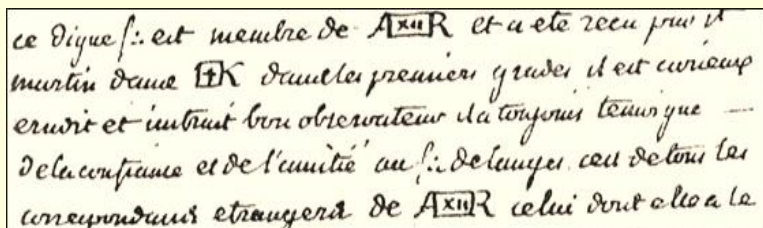 ce digne f∴ est membre de A[XII]R et a eté recu par st
martin dans [+]K dans les premiers grades il est curieux
erudit et instruit bon observateur il a toujours temoigné
de la confiance et de l'amitié au f∴ de langes cest de tous les
correspondans etrangers de A[XII]R celui dont elle a le